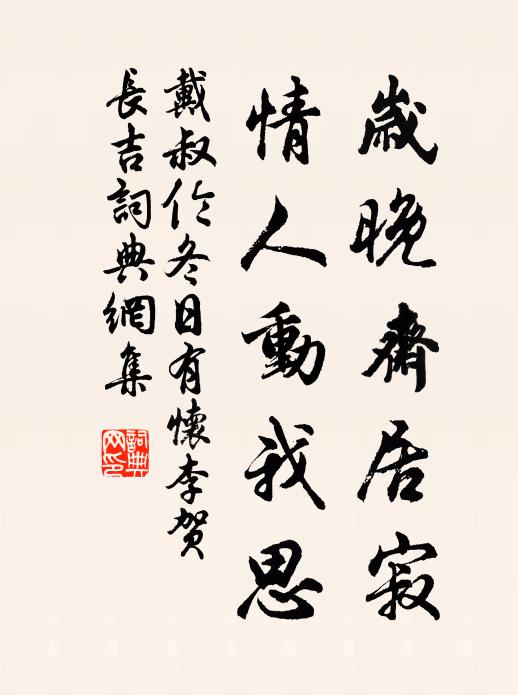 歲晚齋居寂
情人動我思
戴叔倫冬日有懷李賀
長吉詞典網集
詞典
网印